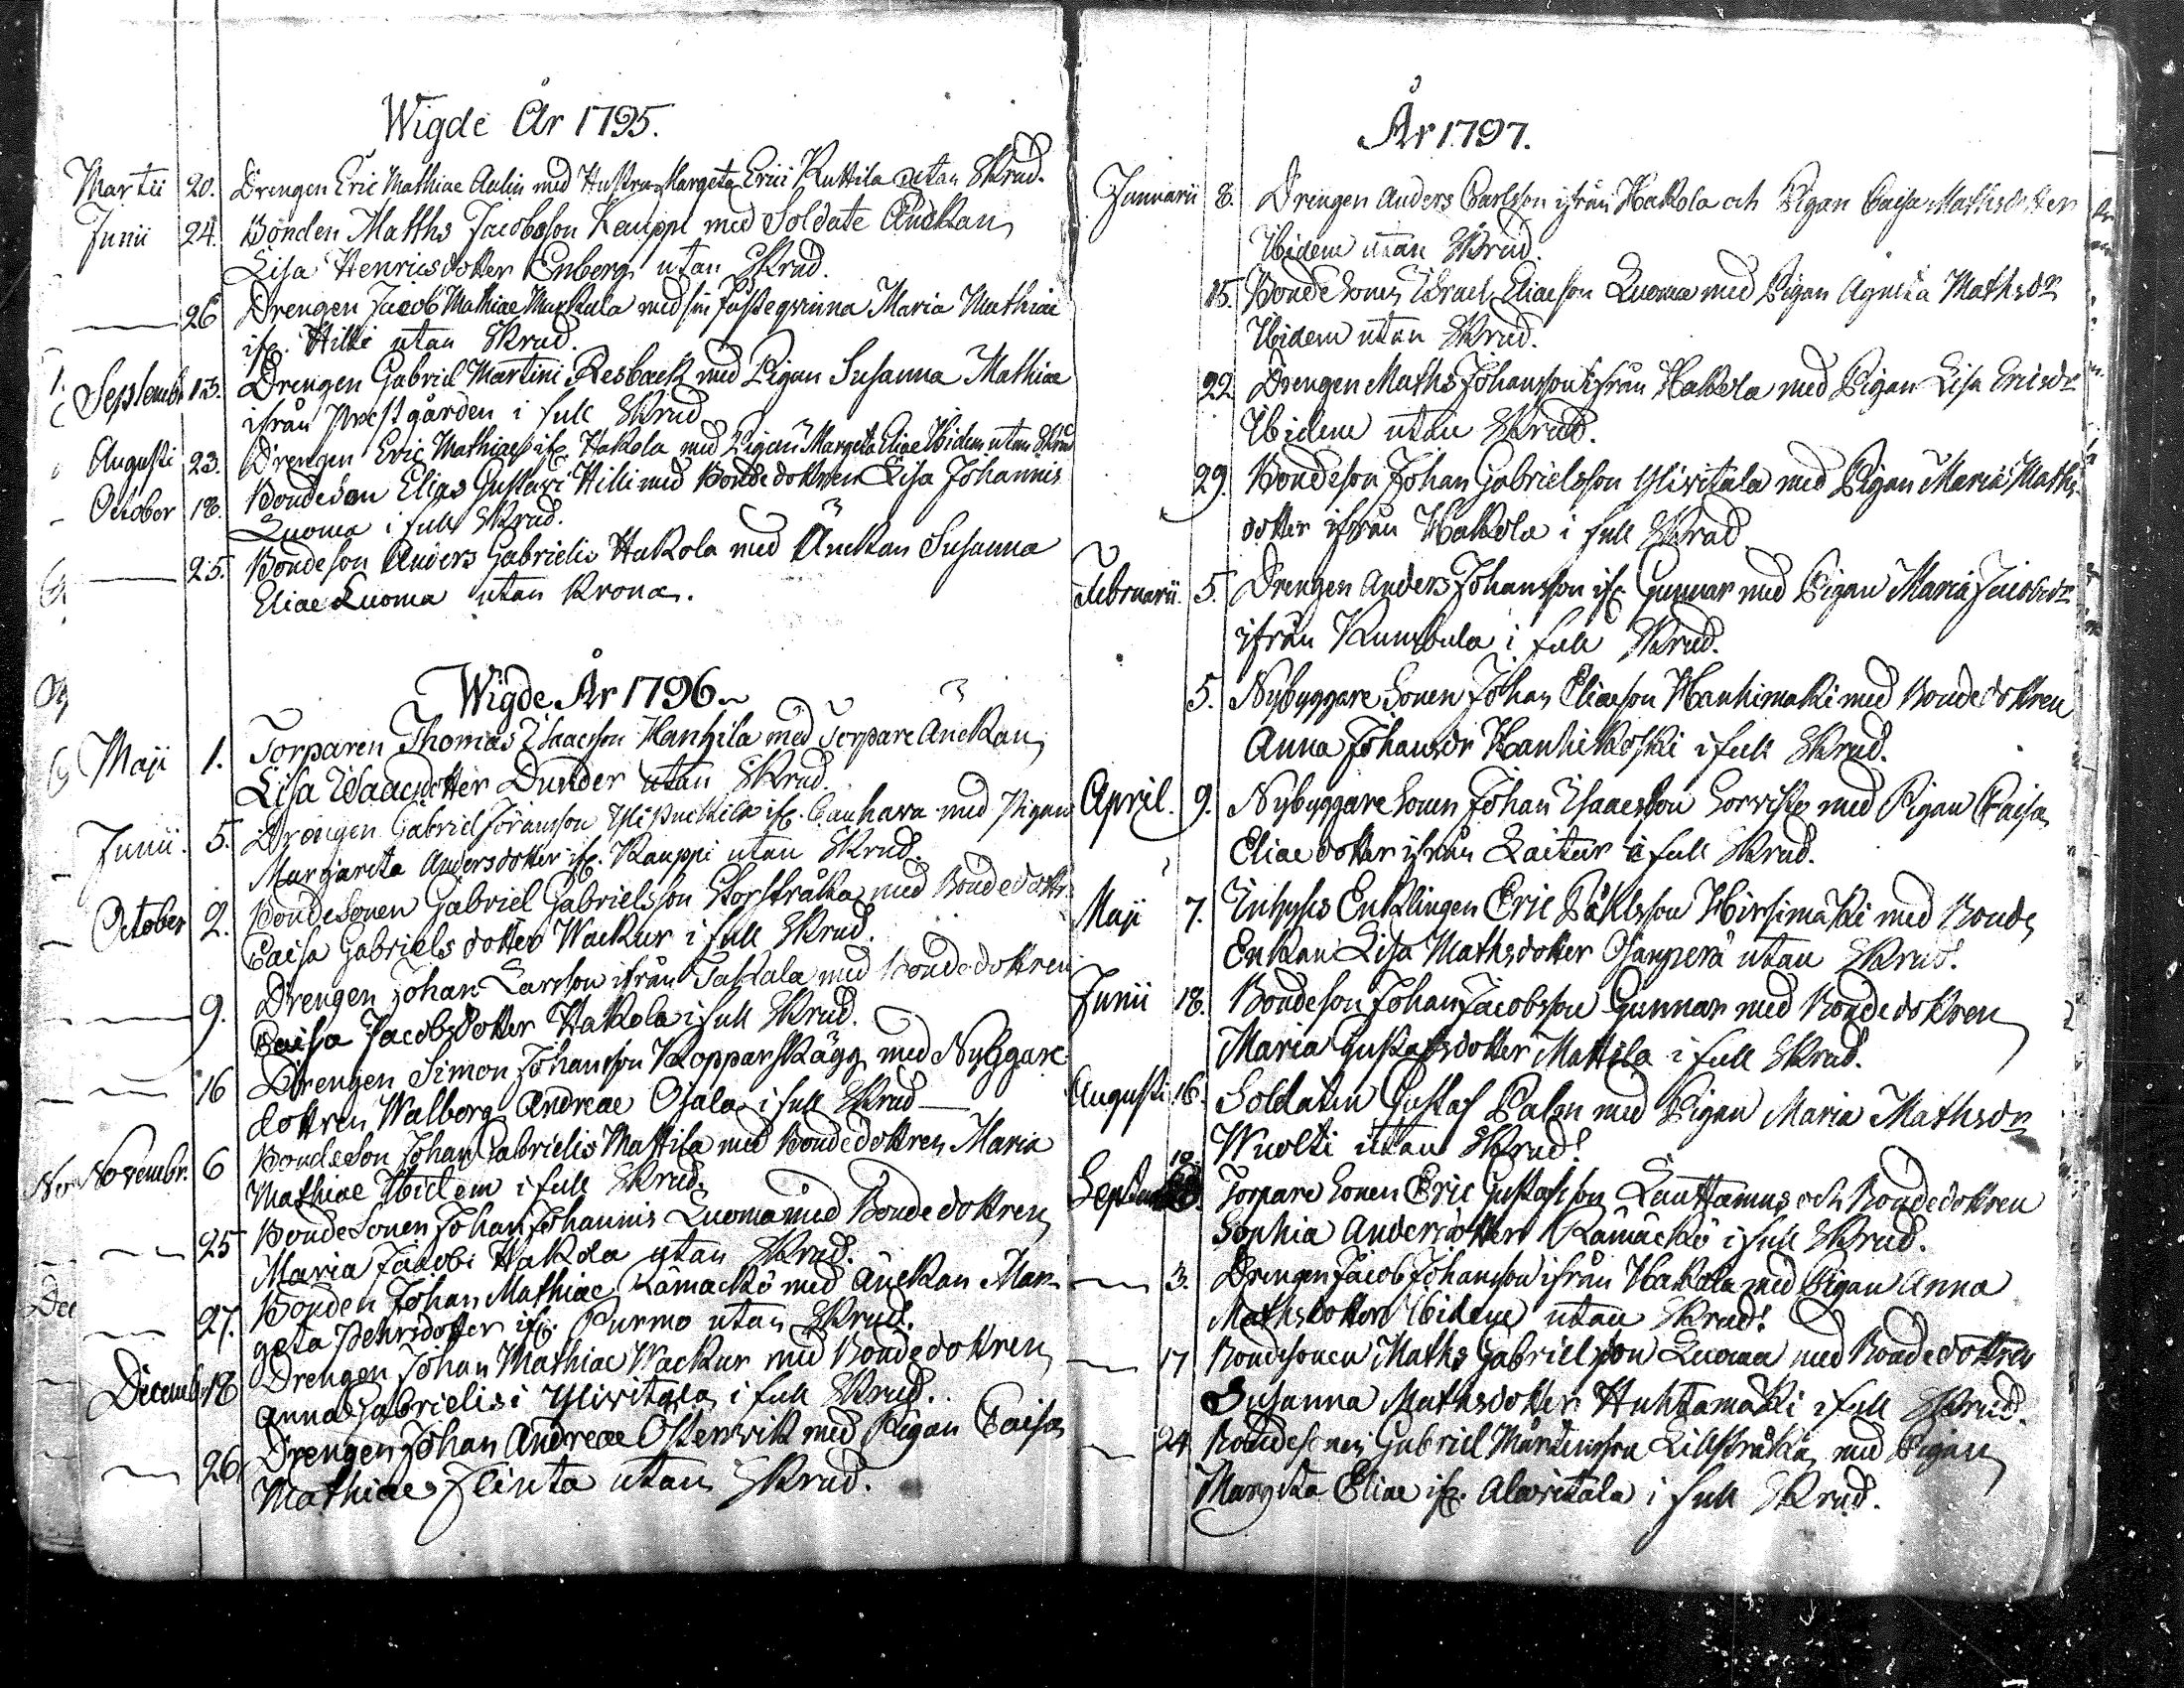 Wigde År 1795.
Martii 20. Drengen Eric Mathiae Aulin med Hustru Margeta Erici Kuttila utan Skrud.
Junii 24. Bonden Matths Jacobsson Kauppi med Soldate Änckan
Lisa Henricsdotter Enberg utan Skrud.
26 Drengen Jacob Mathiae Markula med sin fästeqvinna Maria Mathiae
ifr. Hilli utan Skrud.
Septembr. 13. Drengen Gabriel Martini Resback med Pigan Susanna Mathiae
ifrån Prestgården i full Skrud
Augusti 23. Drengen Eric Mathiae ifr. Hakola med Pigan Margeta Eliae Ibidem utan Skrud
October 18. Bondeson Elias Gustavi Hilli med Bondedottren Lisa Johannis
Luoma i full Skrud.
25. Bondeson Anders Gabrielis Hakola med Änckan Susanna
Eliae Luoma utan Krona.
Wigde År 1796.
Maji 1. Torparen Thomas Isaacson Kanhila med Torpare Änckan
Lisa Isaacsdotter Dunder utan Skrud.
Junii. 5. Drengen Gabriel Joransson ifr. Cauhava med Pigan
Margareta Andersdotter ifr. Kauppi utan Skrud.
October 2. Bondesonen Gabriel Gabrielsson Storstråka med Bondedottr:
Caisa Gabrielsdotter Wackur i full Skrud.
9. Drengen Johan Larsson ifrån Takala med bondedottren
Caisa Jacobsdotter Hakola i full Skrud.
16 Drengen Simon Johansson Kopparskägg med Nybggare
dottren Walborg Andreae Ojala i full Skrud
Novembr. 6 Bondeson Johan Gabrielis Mattila med Bondedottren Maria
Mathiae Ibidem i full Skrud.
25 Bondesonen Johan Johannis Luoma med Bondedottren
Maria Jacobi Hakola utan Skrud.
27. Bonden Johan Mathiae Kämäckö med Änckan Mar
geta Pehrsdotter ifr. Purmo utan Skrud.
Decembr 18 Drengen Johan Mathiae Wackur med Bondedottren
Anna Gabrielis i Ylivitala i full Skrud.
26. Drengen Johan Andreae Osterwik med Pigan Caisa
Mathiae Flinta utan Skrud.
År 1797.
Januarii 8. Drengen Anders Carlson ifrån Hakola och Pigan Caisa Mathsdotter
Ibidem utan Skrud.
15. Bondesonen Israel Eliaeson Luoma med Pigan Agneta Mathsdr
Ibidem utan Skrud.
22. Drengen Maths Johansson ifrån Hakola med Pigan Lisa Ericsdr
Ibidem utan Skrud.
29. Bondeson Johan Gabrielsson Ylivitala med Pigan Maria Maths
dotter ifrån Hakola i full Skrud
Februarii. 5. Drengen Anders Johansson ifr. Gunnar med Pigan Maria Jacobsdr
ifrån Kumbula i full Skrud.
5. Nybyggare Sonen Johan Eliaeson Hanhimäki med Bondedottren
Anna Johansdr Hanhikoski i full Skrud.
April. 9. Nybyggare Sonen Johan Isaacsson Sorvisto med Pigan Caisa
Eliaedotter ifrån Kaitar i full Skrud.
Maji 7. Inhyses Enklingen Eric Påhlsson Hirsimäki med Bonde
Enkan Lisa Mathsdotter Ojanperä utan Skrud.
Junii 18. Bondeson Johan Jacobsson Gunnar med Bondedottren
Maria Gustafsdotter Mattila i full Skrud.
Augusti 16. Soldaten Gustaf Palm med Pigan Maria Mathsdr
Wuolti utan Skrud.
Septemb 10. Torpare Sonen Eric Gustafsson Lauttamus och Bondedottren
Sophia Andersdotter Kämäckö i full Skrud.
3. Drengen Jacob Johansson ifrån Hakola med Pigan Anna
Mathsdotter Ibidem utan Skrud.
17 Bondesonen Maths Gabrielsson Luoma med Bondedottren
Susanna Mathsdotter Huhtamäki i full Skrud.
24 Bondesonen Gabriel Mårtensson Lillstråka med Pigan
Margeta Eliae ifr. Alavitala i full Skrud.